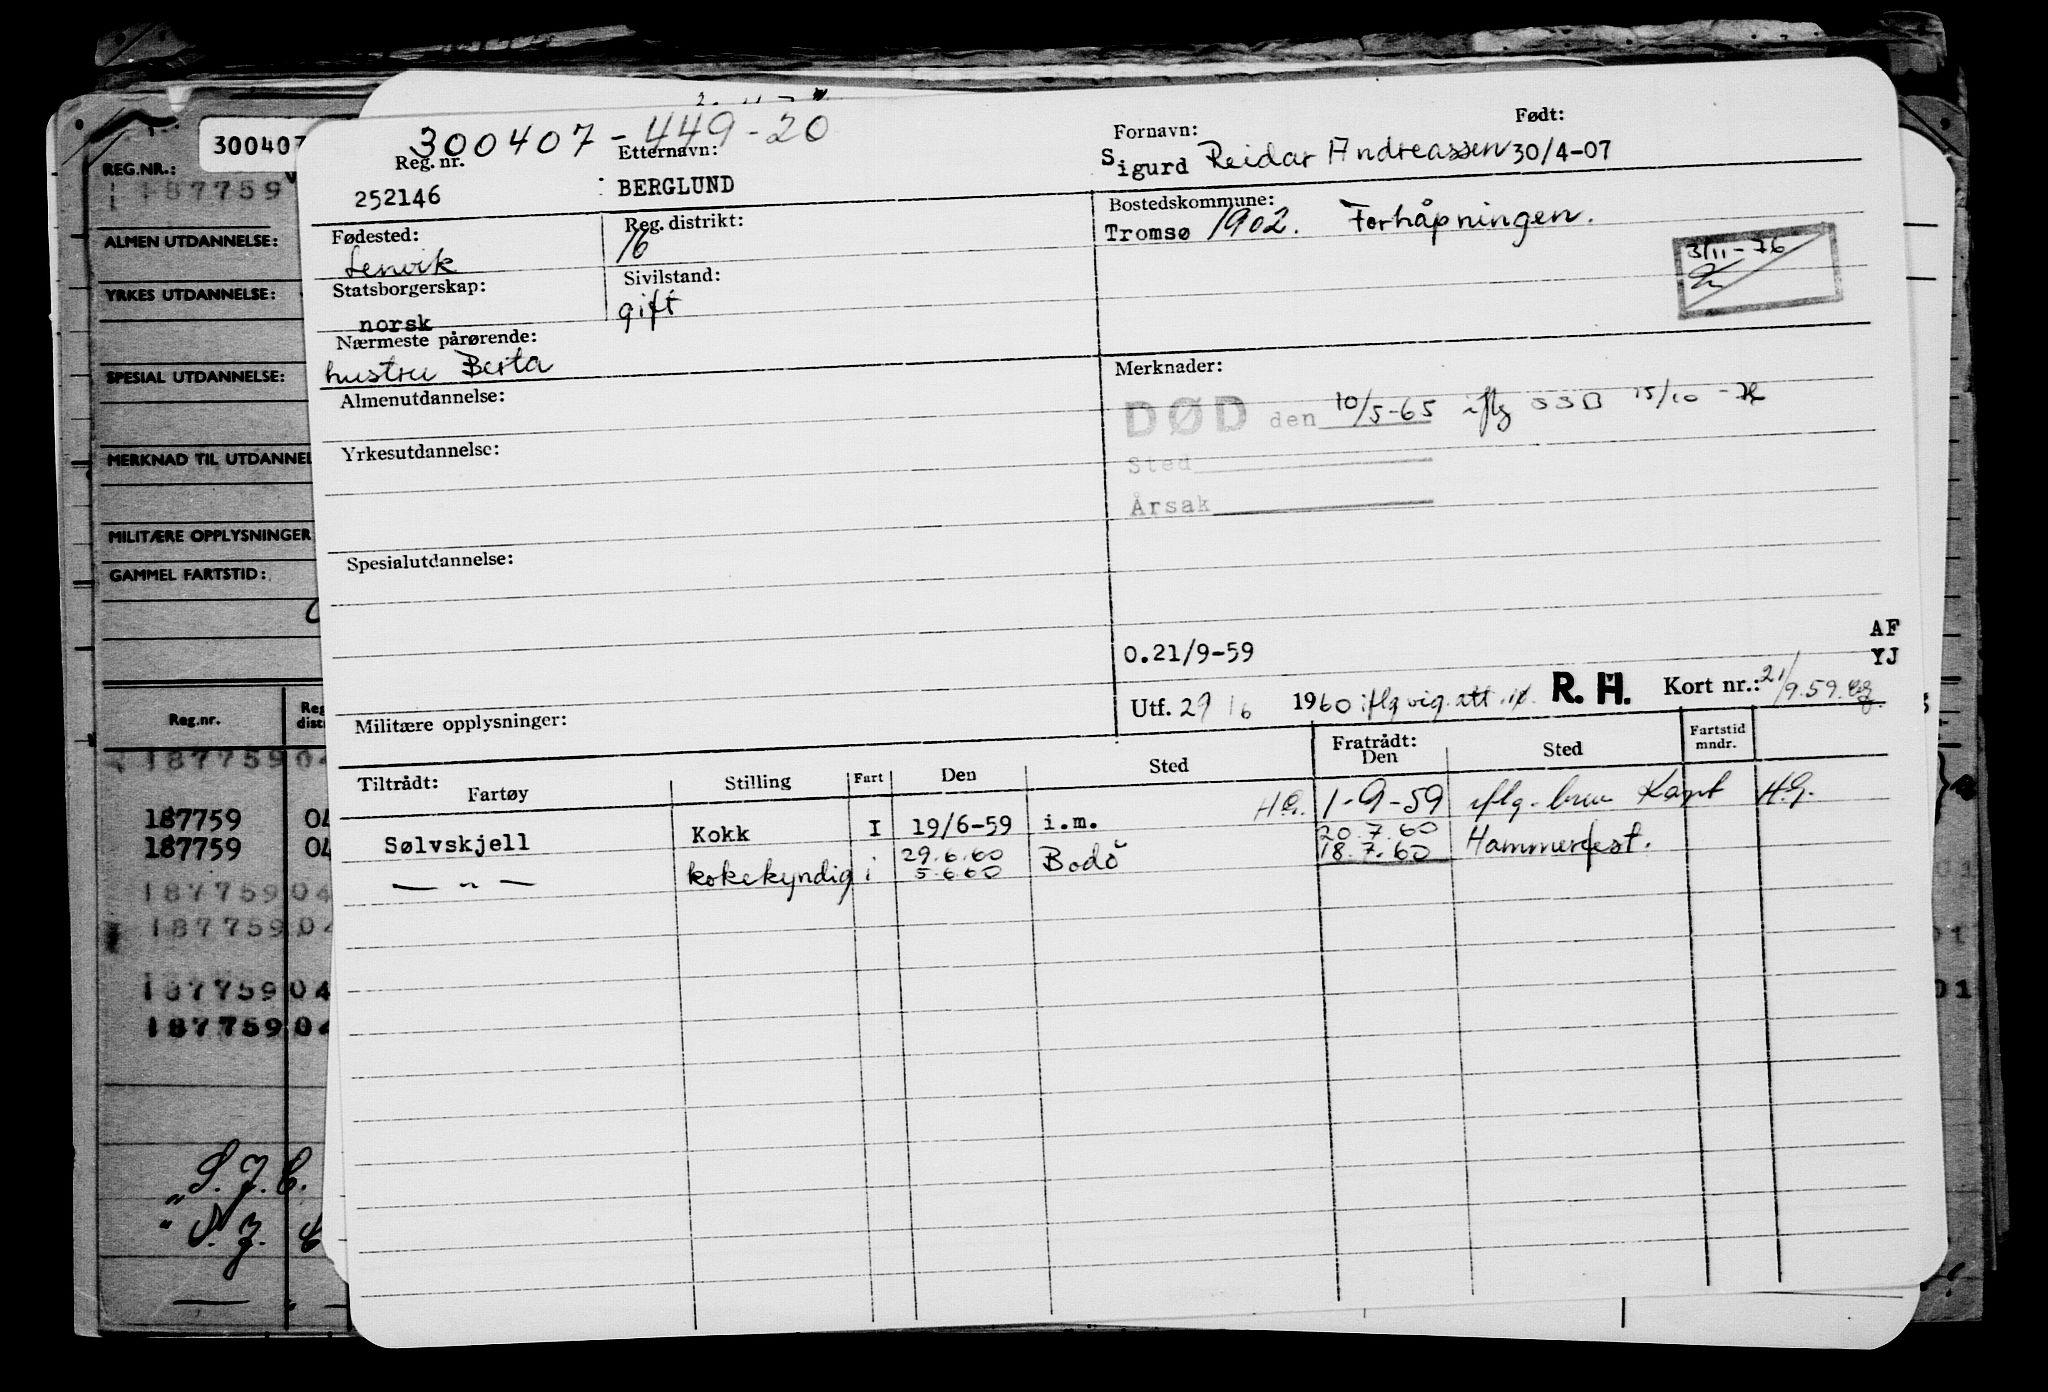 300407-449-20
Reg. nr. Etternavn: Fornavn: Født:
252146 BERGLUND Sigurd Reidar Andreassen 30/4-07
Fødested: Reg. distrikt: Bostedskommune:
Lenvik 16 Tromsø 1902. Forhåpningen.
3/11-76
Statsborgerskap: Sivilstand:
norsk gift
Nærmeste pårørende:
hustru Berta
Merknader:
Almenutdannelse:
DØD den 10/5-65 iflg SSB 15/10-76
Yrkesutdannelse:
Sted
Årsak
Spesialutdannelse:
AF
O.21/9-59
YJ
Militære opplysninger:
Utf. 29/6 1960 iflg vig. att. R.H. Kort nr.: 21/9.59.
Tiltrådt: Fartøy Stilling Fart Den Sted Fratrådt: Den Sted Fartstid mndr.
Sølvskjell Kokk I 19/6-59 i.m. H.G. 1-9-59 iflg. brev Kapt H.G.
— " — kokekyndig i 29.6.60 5.6.60 Bodø 20.7.60 18.7.60 Hammerfest.
REG.NR.: 300407
187759
ALMEN UTDANNELSE:
YRKES UTDANNELSE:
SPESIAL UTDANNELSE:
MERKNAD TIL UTDANNEL
MILITÆRE OPPLYSNINGER
GAMMEL FARTSTID:
Reg.nr. Reg distr
187759 04
187759 04
187759 04
187759 04
187759 04
187759 04
187759 04
01
01
01